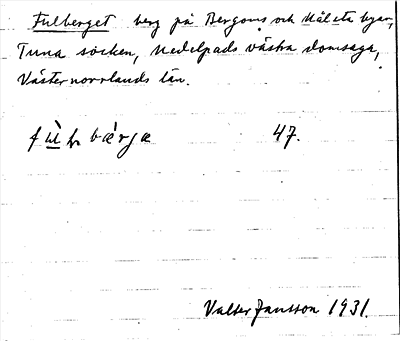 Fulberget berg på Bergoms och Målsta byar,
Tuna socken, Medelpads västra domsaga,
Västernorrlands län.
47.
Valter Jansson 1931.